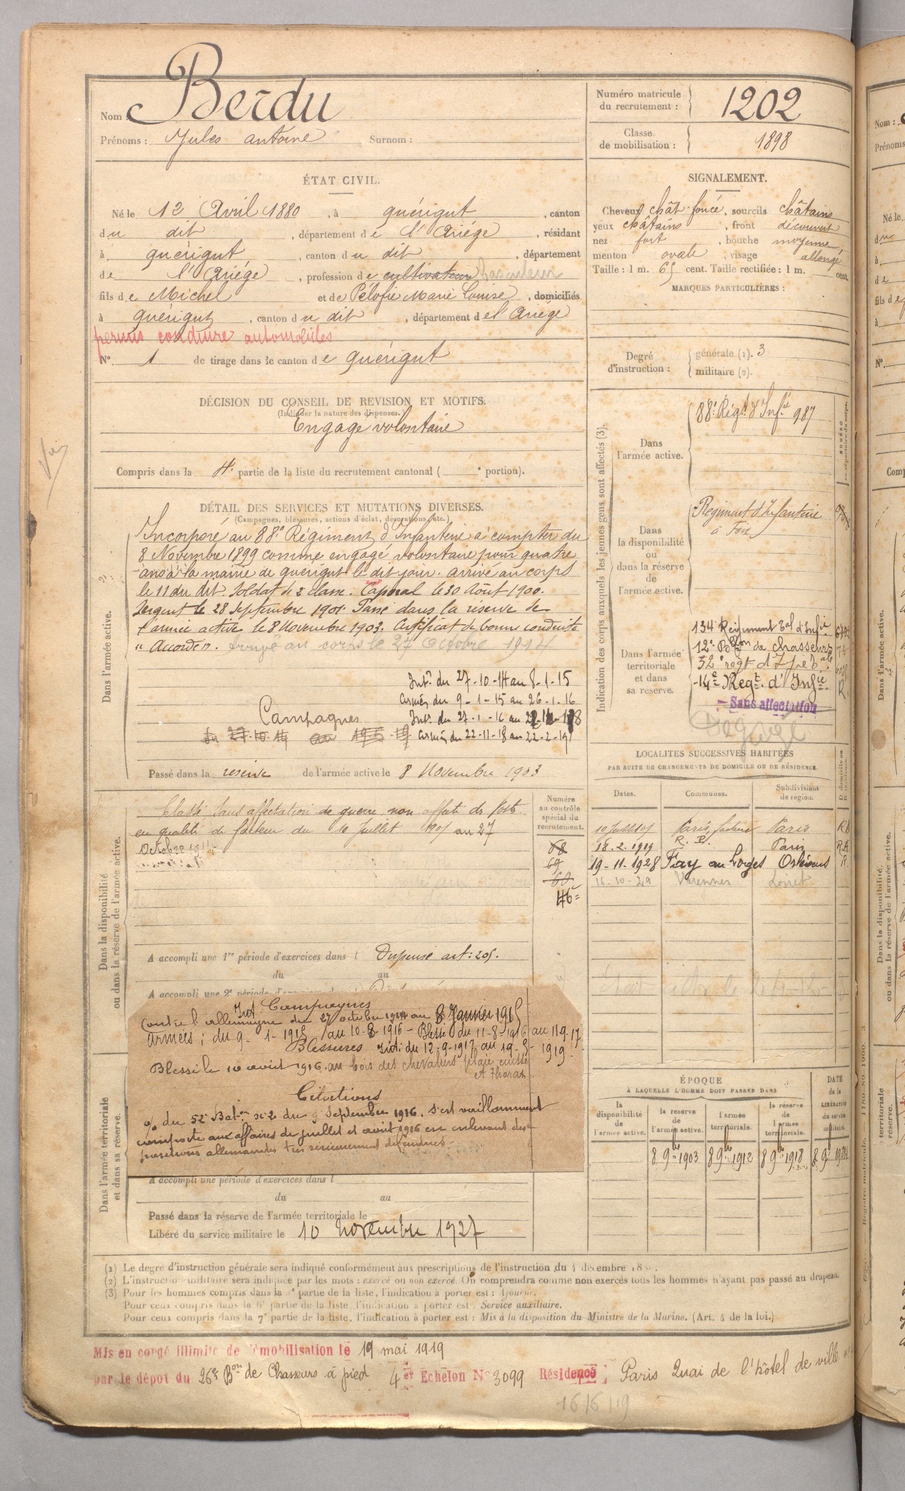 Nom Berdu
Prénoms : Jules antoine Surnom :
Numéro matricule du recrutement : 1202
Classe de mobilisation : 1898
ÉTAT CIVIL.
Né le 12 Avril 1880, à quérigut, canton
du dit, département de l'Ariége, résidant
à quérigut, canton du dit, département
de l'Ariége, profession de cultivateur
fils de Michel et de Pélofie Marie Louise, domiciliés
à quérigut, canton du dit, département de l'Ariege
permis conduire automobiles
N° 1 de tirage dans le canton de quérigut
SIGNALEMENT.
Cheveux chât foncé, sourcils châtains
yeux châtains, front découvert
nez fort, bouche moyenne
menton ovale visage allongé
Taille : 1 m. 65 cent. Taille rectifiée : 1 m. cent.
MARQUES PARTICULIÈRES :
Degré d'instruction : générale (1). 3
militaire (2).
DÉCISION DU CONSEIL DE REVISION ET MOTIFS.
(Indiquer la nature des dispenses.)
Engagé volontaire
Compris dans la 4e partie de la liste du recrutement cantonal ( e portion).
DÉTAIL DES SERVICES ET MUTATIONS DIVERSES.
(Campagnes, blessures, actions d'éclat, décorations, etc.)
Dans l'armée active.
Incorporé au 88e Régiment d'Infanterie à compter du
8 Novembre 1899 comme engagé volontaire pour quatre
ans à la mairie de quérigut le dit jour. arrivé au corps
le 11 du dit. Soldat de 2 classe. Caporal le 20 Août 1900.
Sergent le 28 Septembre 1901. Passé dans la réserve de
l'armée active le 8 Novembre 1903. Certificat de bonne conduite
"Accordé". arrivé au corps le 27 Octobre 1914
Int. du 27-10-14 au 8-1-15
Armées du 9-1-15 au 26-1-16
Campagnes Int. du 27-1-16 au
Armées du 22-11-18 au 22-2-19
Passé dans la réserve de l'armée active le 8 Novembre 1903
Indication des corps auxquels les jeunes gens sont affectés (3).
Dans l'armée active.
88e Régt d'Infie 987
Dans la disponibilité ou dans la réserve de l'armée active.
Régiment d'Infanterie
à Foix
Dans l'armée territoriale et dans sa réserve.
134 Régiment Tal d'Infie
12e Bon de chasseurs
-14e Régt d'Infie
Sans affectation
Dégagé
LOCALITÉS SUCCESSIVES HABITÉES
PAR SUITE DE CHANGEMENTS DE DOMICILE OU DE RÉSIDENCE.
Dates. Communes. Subdivisions de région.
Paris, Paris
18.2.1919 R. P. Paris
19-11-1928 Fay au Loges Orléans
16-10-29 Varennes Loiret
Dans la disponibilité ou dans la réserve de l'armée active.
Numéro au contrôle spécial du recrutement.
Classé sans affectation de guerre non affecté
en qualité de facteur du 10 Juillet au 27
Octobre
A accompli une 1re période d'exercices dans l Dispensé art : 205.
du au
A accompli une 2e période d'exercices dans l
Campagnes
contre l'allemagne Int du 27 octobre 1914 au 8 Janvier 1915
armées : du 9-1-1915 au 10-8-1916 - Blessé du 11-8-1916 au 11.9.17
Blessures Int : du 12-9-1917 au 19-8-1919
Blessé le 10 août 1916 au bois des chevaliers plaie cuisse
et thorax
Citations
o/ du 52e Baton n° 2 du 9 Septembre 1916. S'est vaillamment
comporté aux affaires de juillet et août 1916 en enlevant des
positions allemandes très sérieusement défendues
Dans l'armée territoriale et dans sa réserve.
A accompli une période d'exercices dans l
du au
Passé dans la réserve de l'armée territoriale le
Libéré du service militaire le 10 novembre 1927
ÉPOQUE
À LAQUELLE L'HOMME DOIT PASSER DANS
la disponibilité de l'armée active. la réserve de l'armée active. l'armée territoriale. la réserve de l'armée territoriale. DATE de la LIBÉRATION du service militaire
8 9bre 1903 8 9bre 1912 8 9bre 1918
(1) Le degré d'instruction générale sera indiqué conformément aux prescriptions de l'instruction du 4 décembre
(2) L'instruction militaire sera indiquée par les mots : exercé ou non exercé. On comprendra comme non exercés tous les hommes n'ayant pas passé au drapeau.
(3) Pour les hommes compris dans la partie de la liste, l'indication à porter est : Ajourné.
Pour ceux compris dans la 6e partie de la liste, l'indication à porter est : Service auxiliaire.
Pour ceux compris dans la 7e partie de la liste, l'indication à porter est : Mis à la disposition du Ministre de la Marine. (Art. 4 de la loi.)
Mis en congé illimité de démobilisation le 19 mai 1919
par le dépôt du 26e Bon de Chasseurs à pied 4e Echelon N° 3099 Résidence : Paris Quai de l'hôtel de ville
16/6/19